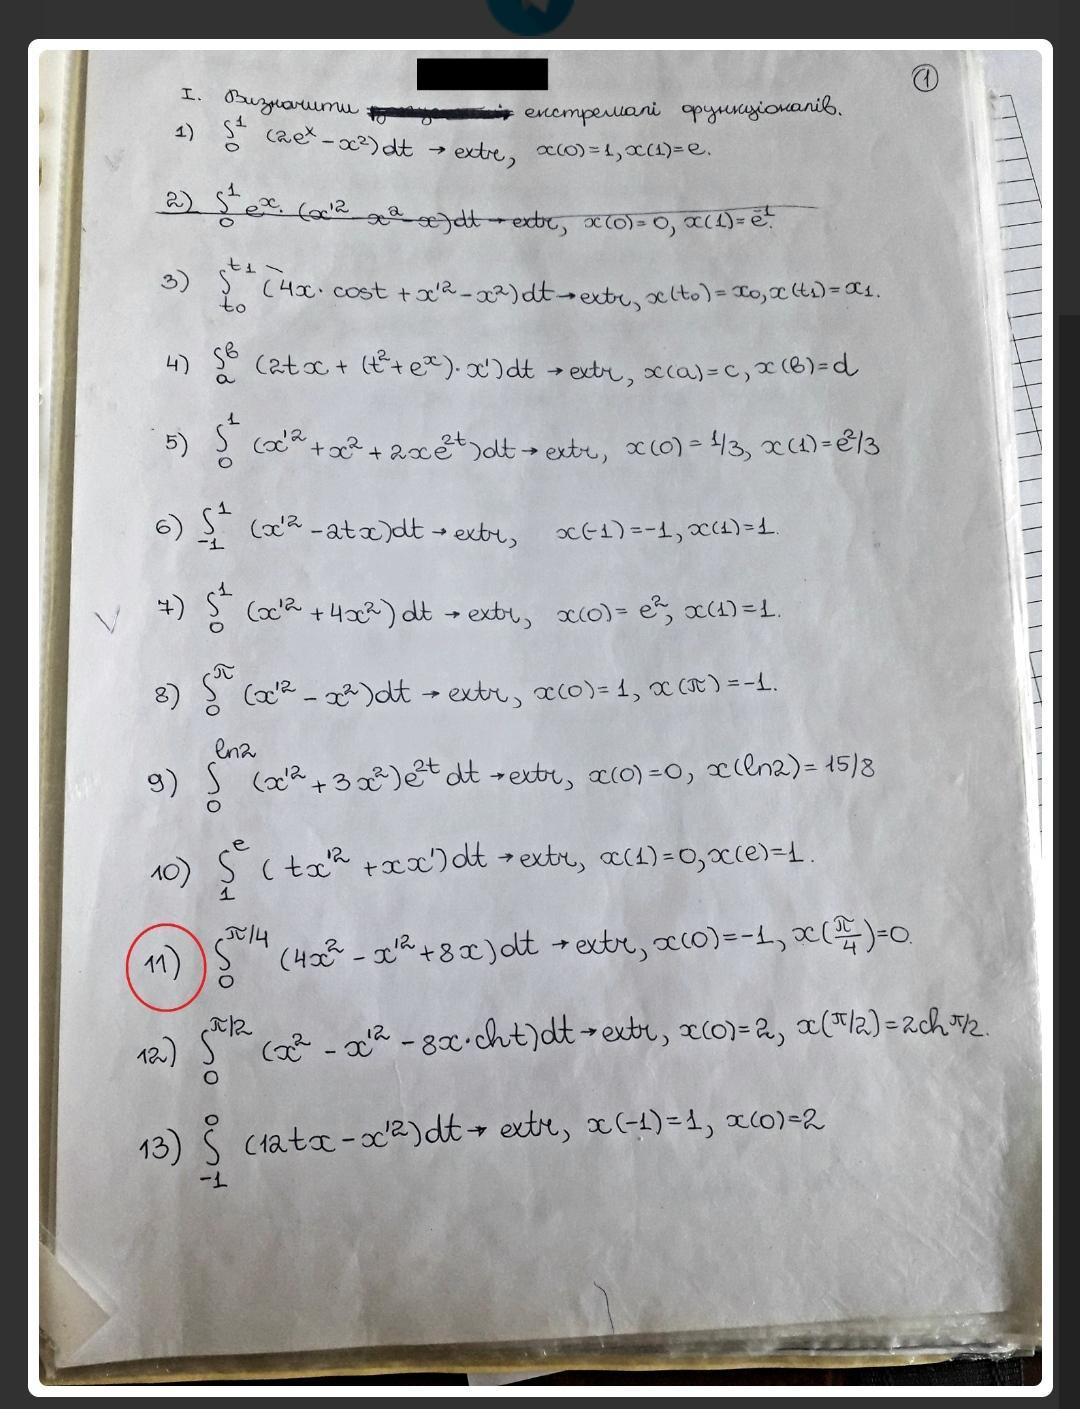 1
I. Визначити екстремалі функціоналів.
1) ∫₀¹ (2eˣ - x²)dt → extr, x(0)=1, x(1)=e.
2) ∫₀¹ eˣ· (x'² x² - x)dt → extr, x(0)=0, x(1)=e⁻¹.
3) ∫ₜ₀ᵗ¹ (4x· cost + x'² - x²)dt → extr, x(t₀)=x₀, x(t₁)=x₁.
4) ∫ₐᵇ (2tx + (t² + eˣ)·x')dt → extr, x(a)=c, x(b)=d
5) ∫₀¹ (x'² + x² + 2xe²ᵗ)dt → extr, x(0)=1/3, x(1)=e²/3
6) ∫₋₁¹ (x'² - 2tx)dt → extr, x(-1)=-1, x(1)=1.
7) ∫₀¹ (x'² + 4x²)dt → extr, x(0)=e², x(1)=1.
8) ∫₀^π (x'² - x²)dt → extr, x(0)=1, x(π)=-1.
9) ∫₀^ln2 (x'² + 3x²)e²ᵗ dt → extr, x(0)=0, x(ln2)=15/8
10) ∫₁ᵉ (tx'² + xx')dt → extr, x(1)=0, x(e)=1.
11) ∫₀^π/4 (4x² - x'² + 8x)dt → extr, x(0)=-1, x(π/4)=0.
12) ∫₀^π/2 (x² - x'² - 8x·cht)dt → extr, x(0)=2, x(π/2)=2ch π/2.
13) ∫₋₁⁰ (12tx - x'²)dt → extr, x(-1)=1, x(0)=2